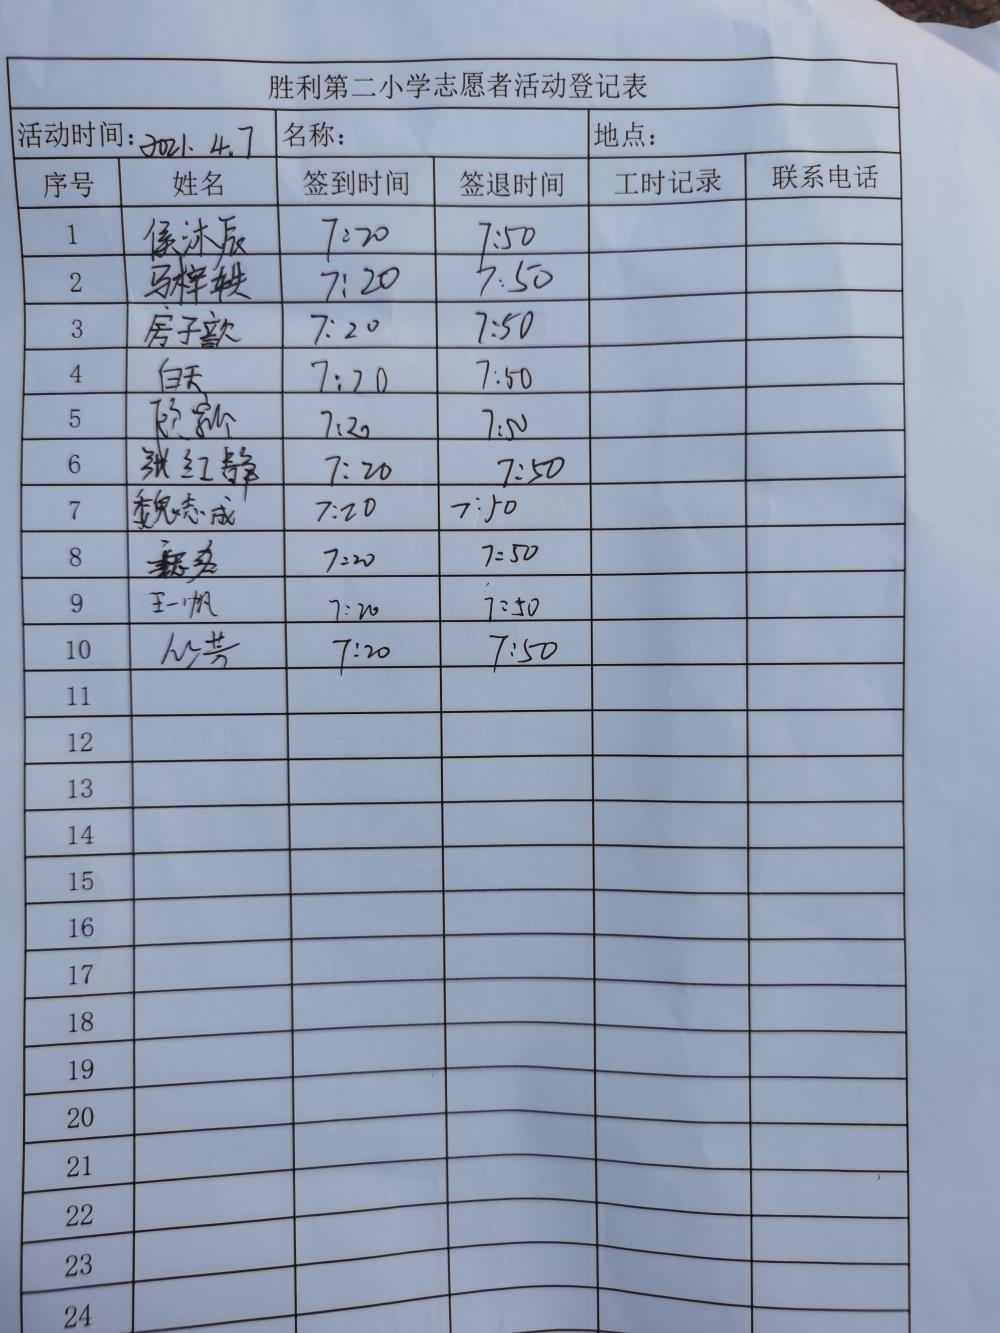 胜利第二小学志愿者活动登记表
活动时间: 2021.4.7 名称: 地点:
序号 姓名 签到时间 签退时间 工时记录 联系电话
1 侯沐辰 7:20 7:50
2 马梓轶 7:20 7:50
3 房子歆 7:20 7:50
4 白天 7:20 7:50
5 7:20 7:50
6 张红静 7:20 7:50
7 魏志成 7:20 7:50
8 7:20 7:50
9 王一帆 7:20 7:50
10 7:20 7:50
11
12
13
14
15
16
17
18
19
20
21
22
23
24